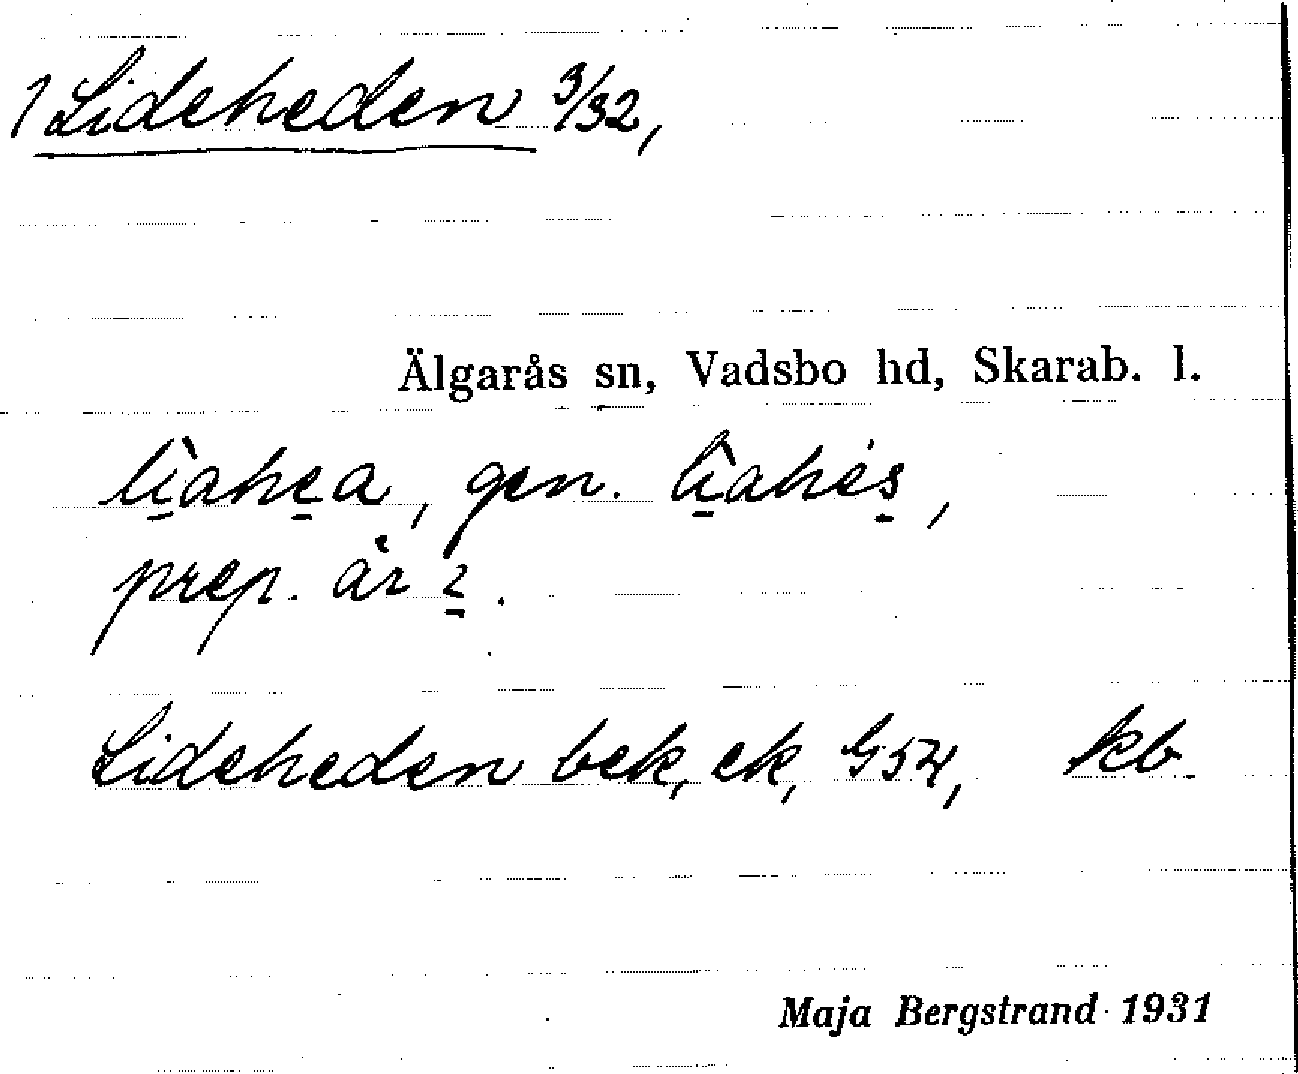 1 Lideheden 3/32,
Älgarås sn, Vadsbo hd, Skarab. l.
gen.
prep.
Lideheden bek, ek, G54, kb
Maja Bergstrand 1931